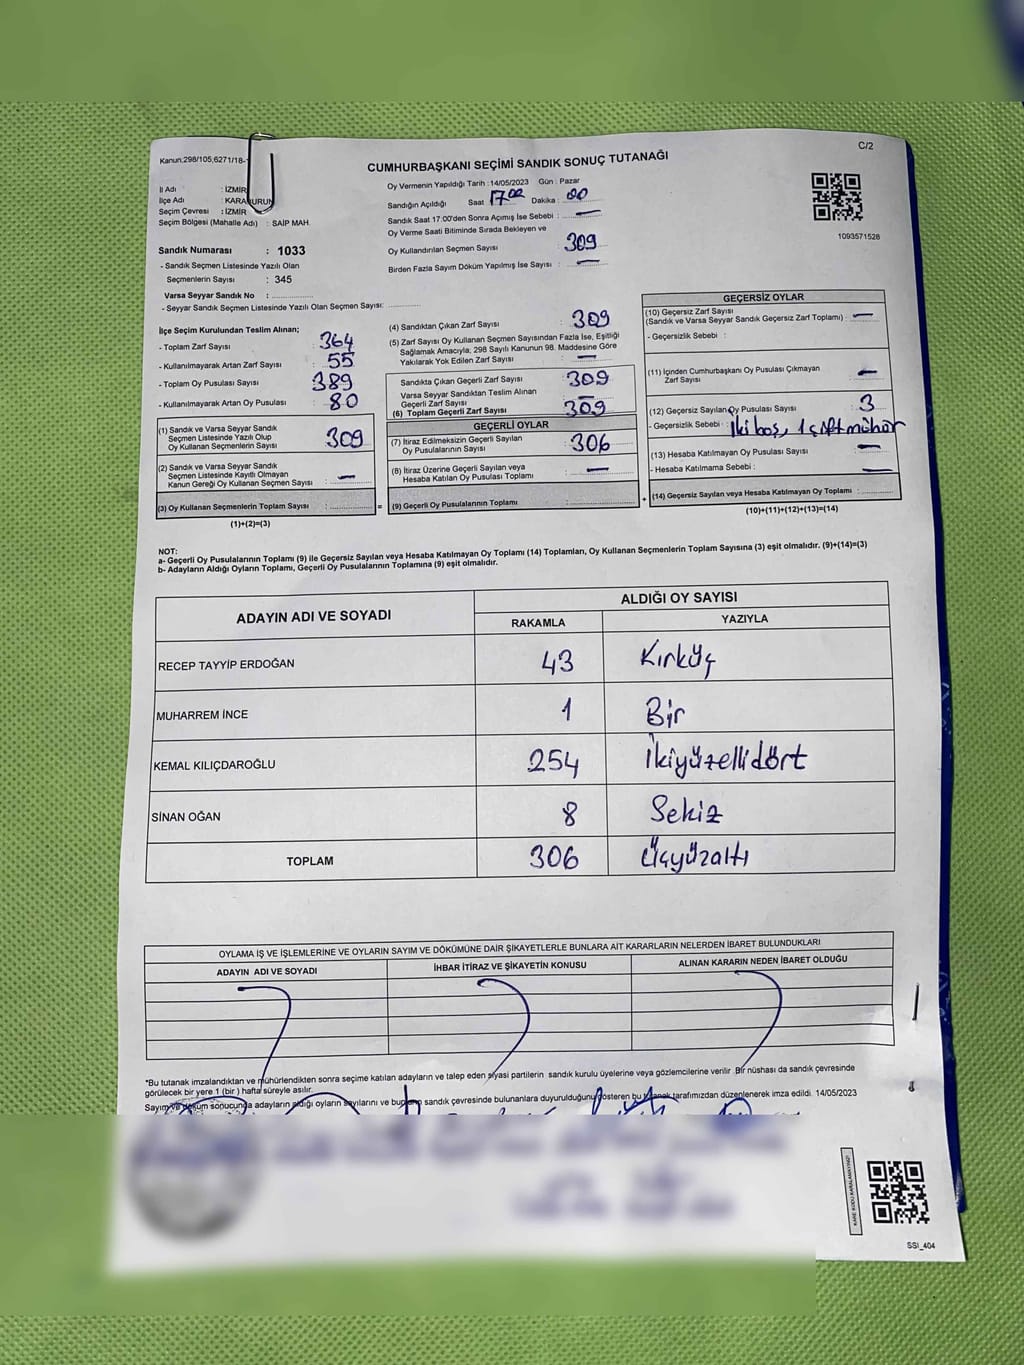 C/2
Kanun;298/105,6271/18-
CUMHURBAŞKANI SEÇİMİ SANDIK SONUÇ TUTANAĞI
İl Adı : İZMİR
İlçe Adı : KARABURUN
Seçim Çevresi : İZMİR
Seçim Bölgesi (Mahalle Adı) : SAİP MAH.
Sandık Numarası : 1033
- Sandık Seçmen Listesinde Yazılı Olan
Seçmenlerin Sayısı : 345
Varsa Seyyar Sandık No :
- Seyyar Sandık Seçmen Listesinde Yazılı Olan Seçmen Sayısı:
Oy Vermenin Yapıldığı Tarih :14/05/2023 Gün : Pazar
Sandığın Açıldığı Saat 17.00 Dakika : 00
Sandık Saat 17:00'den Sonra Açımış İse Sebebi : —
Oy Verme Saati Bitiminde Sırada Bekleyen ve
Oy Kullandırılan Seçmen Sayısı 309
Birden Fazla Sayım Döküm Yapılmış İse Sayısı : —
1093571528
İlçe Seçim Kurulundan Teslim Alınan;
- Toplam Zarf Sayısı : 364
- Kullanılmayarak Artan Zarf Sayısı : 55
- Toplam Oy Pusulası Sayısı : 389
- Kullanılmayarak Artan Oy Pusulası : 80
(1) Sandık ve Varsa Seyyar Sandık
Seçmen Listesinde Yazılı Olup
Oy Kullanan Seçmenlerin Sayısı : 309
(2) Sandık ve Varsa Seyyar Sandık
Seçmen Listesinde Kayıtlı Olmayan
Kanun Gereği Oy Kullanan Seçmen Sayısı : —
(3) Oy Kullanan Seçmenlerin Toplam Sayısı :
(1)+(2)=(3)
(4) Sandıktan Çıkan Zarf Sayısı : 309
(5) Zarf Sayısı Oy Kullanan Seçmen Sayısından Fazla İse, Eşitliği
Sağlamak Amacıyla, 298 Sayılı Kanunun 98. Maddesine Göre
Yakılarak Yok Edilen Zarf Sayısı : —
Sandıkta Çıkan Geçerli Zarf Sayısı : 309
Varsa Seyyar Sandıktan Teslim Alınan
Geçerli Zarf Sayısı : —
(6) Toplam Geçerli Zarf Sayısı : 309
GEÇERLİ OYLAR
(7) İtiraz Edilmeksizin Geçerli Sayılan
Oy Pusulalarının Sayısı : 306
(8) İtiraz Üzerine Geçerli Sayılan veya
Hesaba Katılan Oy Pusulası Toplamı : —
= (9) Geçerli Oy Pusulalarının Toplamı :
GEÇERSİZ OYLAR
(10) Geçersiz Zarf Sayısı
(Sandık ve Varsa Seyyar Sandık Geçersiz Zarf Toplamı) : —
- Geçersizlik Sebebi :
(11) İçinden Cumhurbaşkanı Oy Pusulası Çıkmayan
Zarf Sayısı : —
(12) Geçersiz Sayılan Oy Pusulası Sayısı : 3
- Geçersizlik Sebebi : İki boş, 1 çift mühür
(13) Hesaba Katılmayan Oy Pusulası Sayısı : —
- Hesaba Katılmama Sebebi : —
+ (14) Geçersiz Sayılan veya Hesaba Katılmayan Oy Toplamı :
(10)+(11)+(12)+(13)=(14)
NOT:
a- Geçerli Oy Pusulalarının Toplamı (9) ile Geçersiz Sayılan veya Hesaba Katılmayan Oy Toplamı (14) Toplamları, Oy Kullanan Seçmenlerin Toplam Sayısına (3) eşit olmalıdır. (9)+(14)=(3)
b- Adayların Aldığı Oyların Toplamı, Geçerli Oy Pusulalarının Toplamına (9) eşit olmalıdır.
ADAYIN ADI VE SOYADI ALDIĞI OY SAYISI
RAKAMLA YAZIYLA
RECEP TAYYİP ERDOĞAN 43 Kırküç
MUHARREM İNCE 1 Bir
KEMAL KILIÇDAROĞLU 254 İkiyüzellidört
SİNAN OĞAN 8 Sekiz
TOPLAM 306 Üçyüzaltı
OYLAMA İŞ VE İŞLEMLERİNE VE OYLARIN SAYIM VE DÖKÜMÜNE DAİR ŞİKAYETLERLE BUNLARA AİT KARARLARIN NELERDEN İBARET BULUNDUKLARI
ADAYIN ADI VE SOYADI İHBAR İTİRAZ VE ŞİKAYETİN KONUSU ALINAN KARARIN NEDEN İBARET OLDUĞU
*Bu tutanak imzalandıktan ve mühürlendikten sonra seçime katılan adayların ve talep eden siyasi partilerin sandık kurulu üyelerine veya gözlemcilerine verilir. Bir nüshası da sandık çevresinde
görülecek bir yere 1 (bir ) hafta süreyle asılır.
Sayım ve döküm sonucunda adayların aldığı oyların sayılarını ve bunların sandık çevresinde bulunanlara duyurulduğunu gösteren bu tutanak tarafımızdan düzenlenerek imza edildi. 14/05/2023
SSI_404